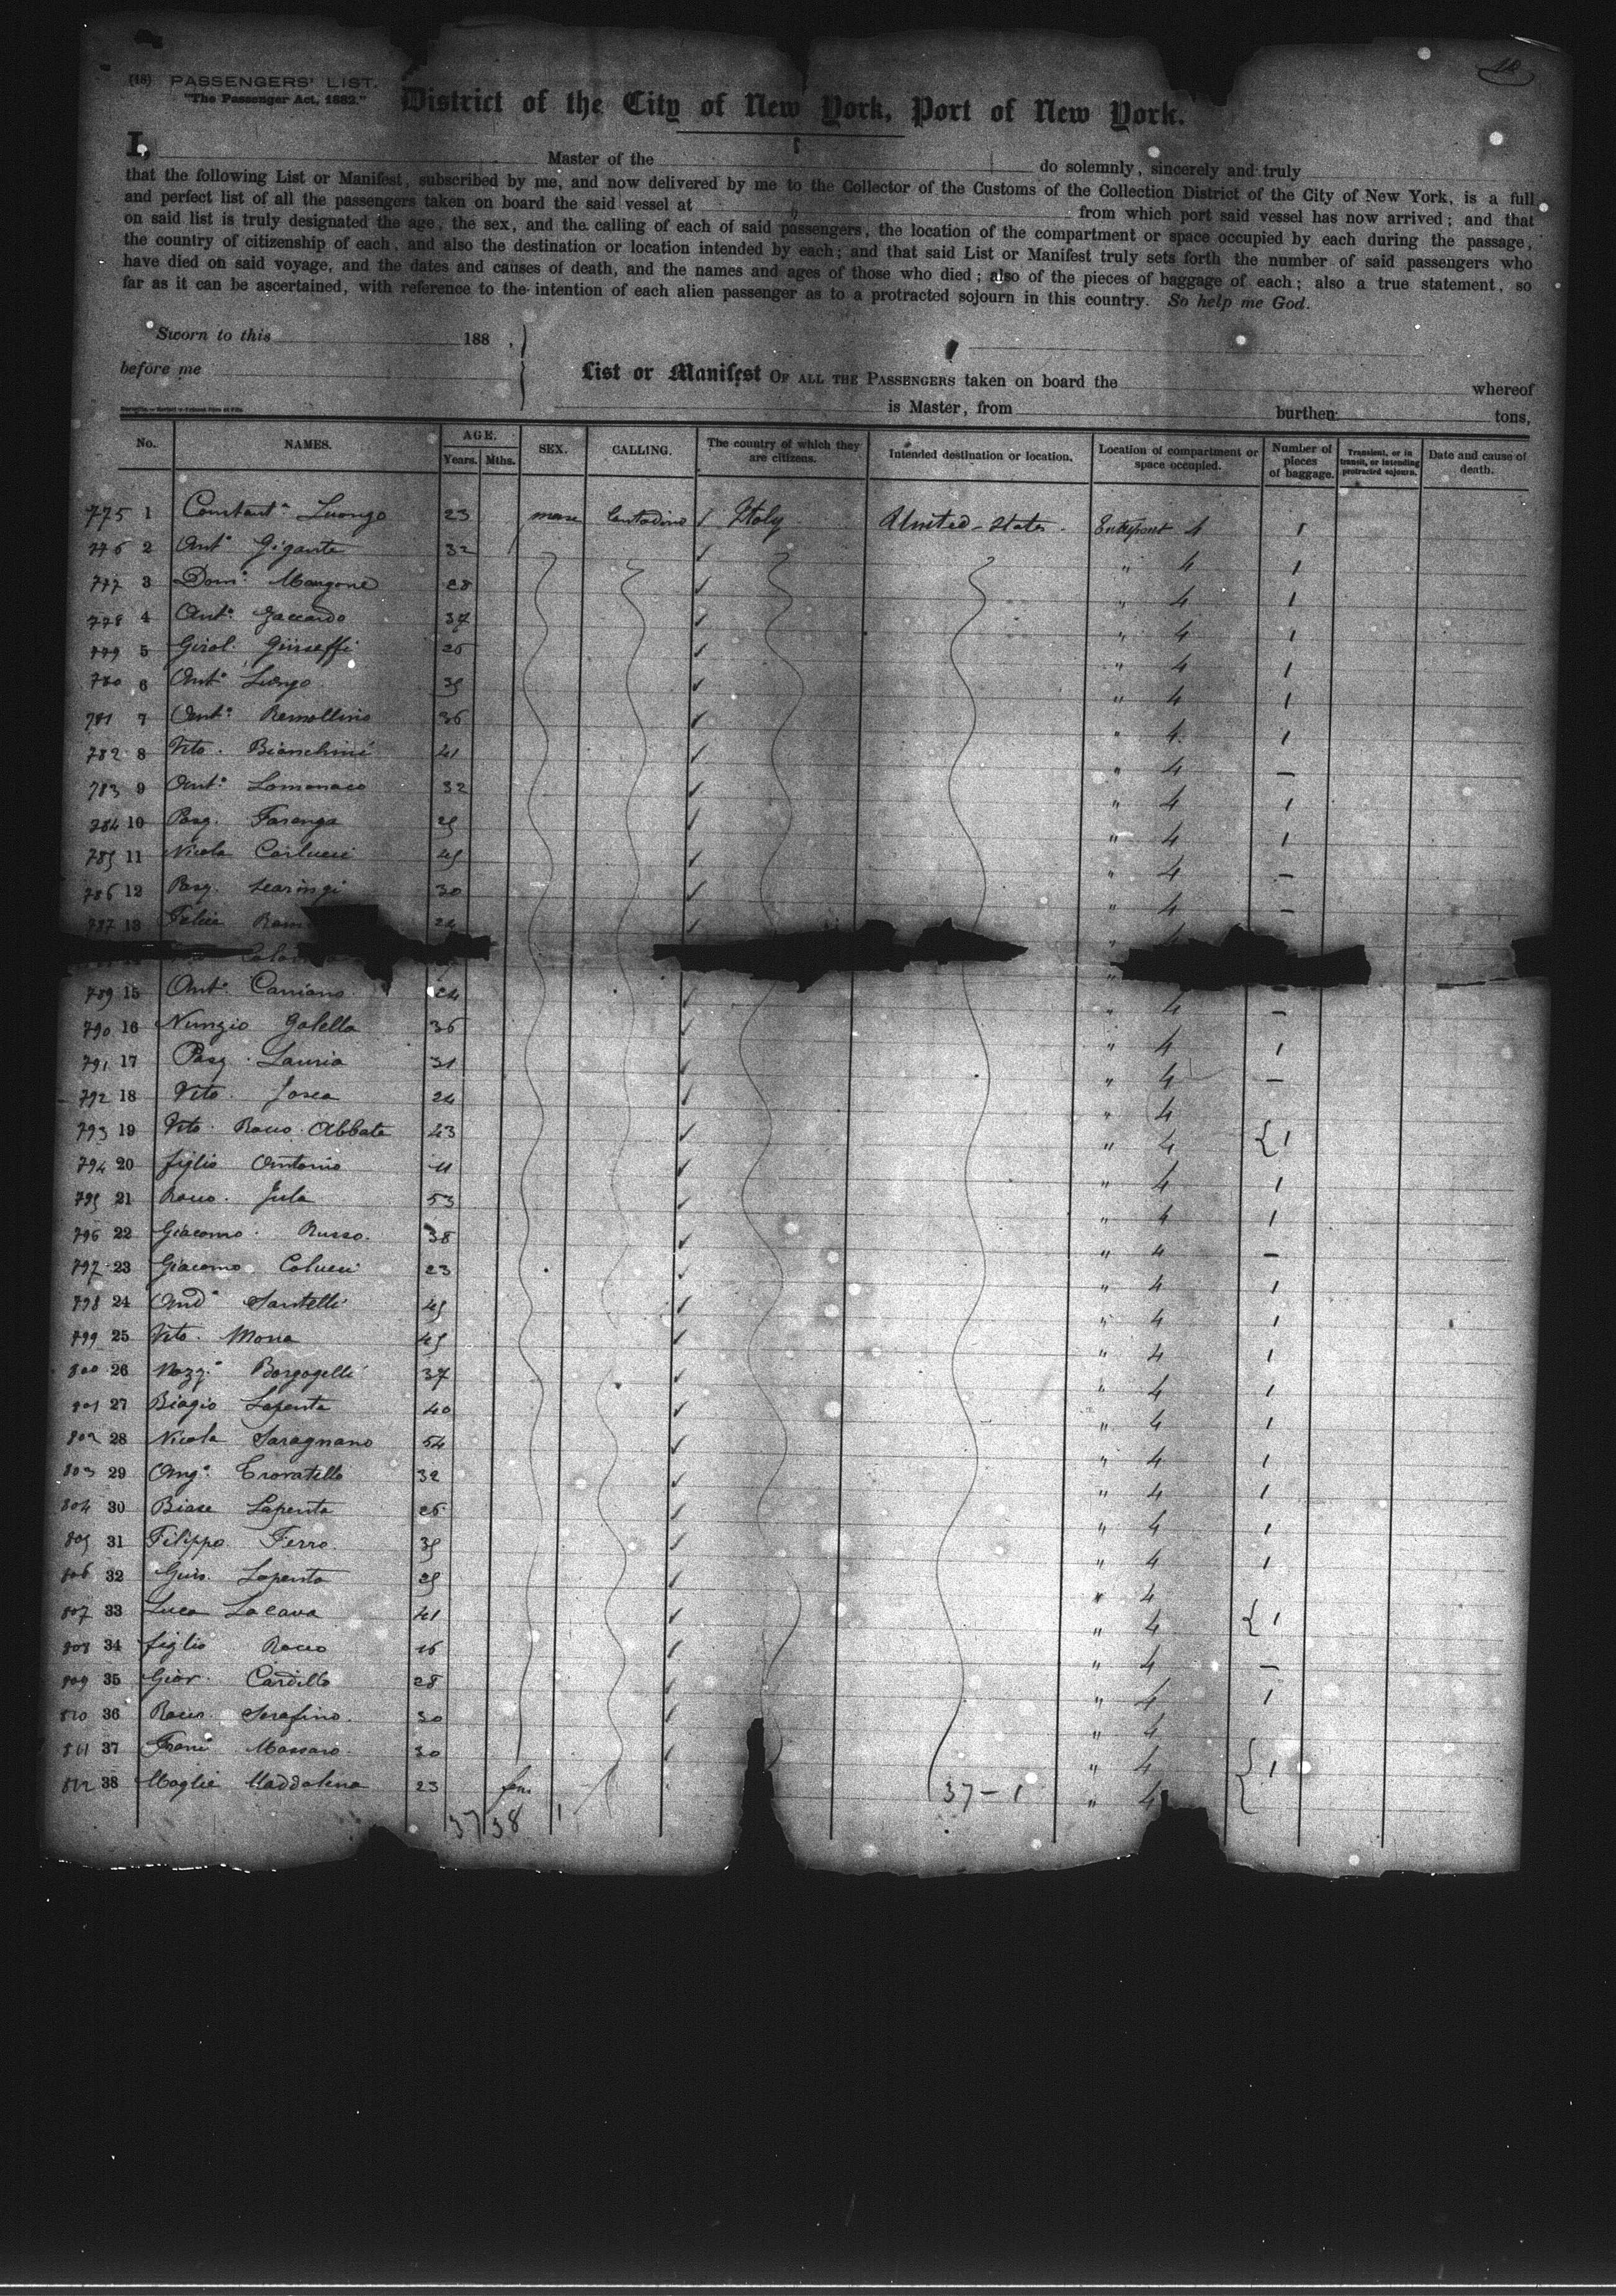 (18) PASSENGERS' LIST.
"The Passenger Act, 1882."
District of the City of New York, Port of New York.
I, Master of the do solemnly, sincerely and truly
that the following List or Manifest, subscribed by me, and now delivered by me to the Collector of the Customs of the Collection District of the City of New York, is a full
and perfect list of all the passengers taken on board the said vessel at from which port said vessel has now arrived; and that
on said list is truly designated the age, the sex, and the calling of each of said passengers, the location of the compartment or space occupied by each during the passage,
the country of citizenship of each, and also the destination or location intended by each; and that said List or Manifest truly sets forth the number of said passengers who
have died on said voyage, and the dates and causes of death, and the names and ages of those who died; also of the pieces of baggage of each; also a true statement, so
far as it can be ascertained, with reference to the intention of each alien passenger as to a protracted sojourn in this country. So help me God.
Sworn to this 188 ,
before me
List or Manifest OF ALL THE PASSENGERS taken on board the whereof
is Master, from burthen tons,
No. NAMES. AGE. Years. Mths. SEX. CALLING. The country of which they are citizens. Intended destination or location. Location of compartment or space occupied. Number of pieces of baggage. Transient, or in transit, or intending protracted sojourn. Date and cause of death.
775 1 Constant° Luongo 23 Contadino Italy United-States 4 1
776 2 Ant° Gigante 32 " 4 1
777 3 Dom° Mangone 28 " 4 1
778 4 Ant° Zaccardo 37 " 4 1
779 5 Girol. 26 " 4 1
780 6 Ant° Luongo 39 " 4 1
781 7 Ant° Remollino 36 " 4 1
782 8 Vito Bianchini 41 " 4 –
783 9 Ant° Lomonaco 32 " 4 1
784 10 Pasq. Faranga 29 " 4 1
785 11 Nicola Carlucci 49 " 4 –
786 12 Pasq. Scaringi 30 " 4 –
787 13 Felice
789 15 Ant° 24 " 4 –
790 16 Nunzio Galella 36 " 4 1
791 17 Pasq. Lauria 31 " 4 –
792 18 Vito Josca 24 " 4
793 19 Vito Rocco Abbate 43 " 4 { 1
794 20 figlio Antonio 11 " 4 1
795 21 Rocco Jula 53 " 4 1
796 22 Giacomo Russo. 38 " 4 –
797 23 Giacomo Colucci 23 " 4 1
798 24 And° Santelli 49 " 4 1
799 25 Vito 49 " 4 1
800 26 37 " 4 1
801 27 Biagio Lapenta 40 " 4 1
802 28 Nicola Saragnano 54 " 4 1
803 29 Ang° Trovatello 32 " 4 1
804 30 Biase Lapenta 26 " 4 1
805 31 Filippo Ferro 39 " 4 1
806 32 Lapenta 29 " 4
807 33 Luca Lacava 41 " 4 { 1
808 34 figlio Rocco 16 " 4 –
809 35 Giov. Cardillo 28 " 4 1
810 36 Rocco Serafino 30 " 4
811 37 Massaro 30 " 4 { 1
812 38 Moglie Maddalena 23 fem 37–1 " 4
37 38 1